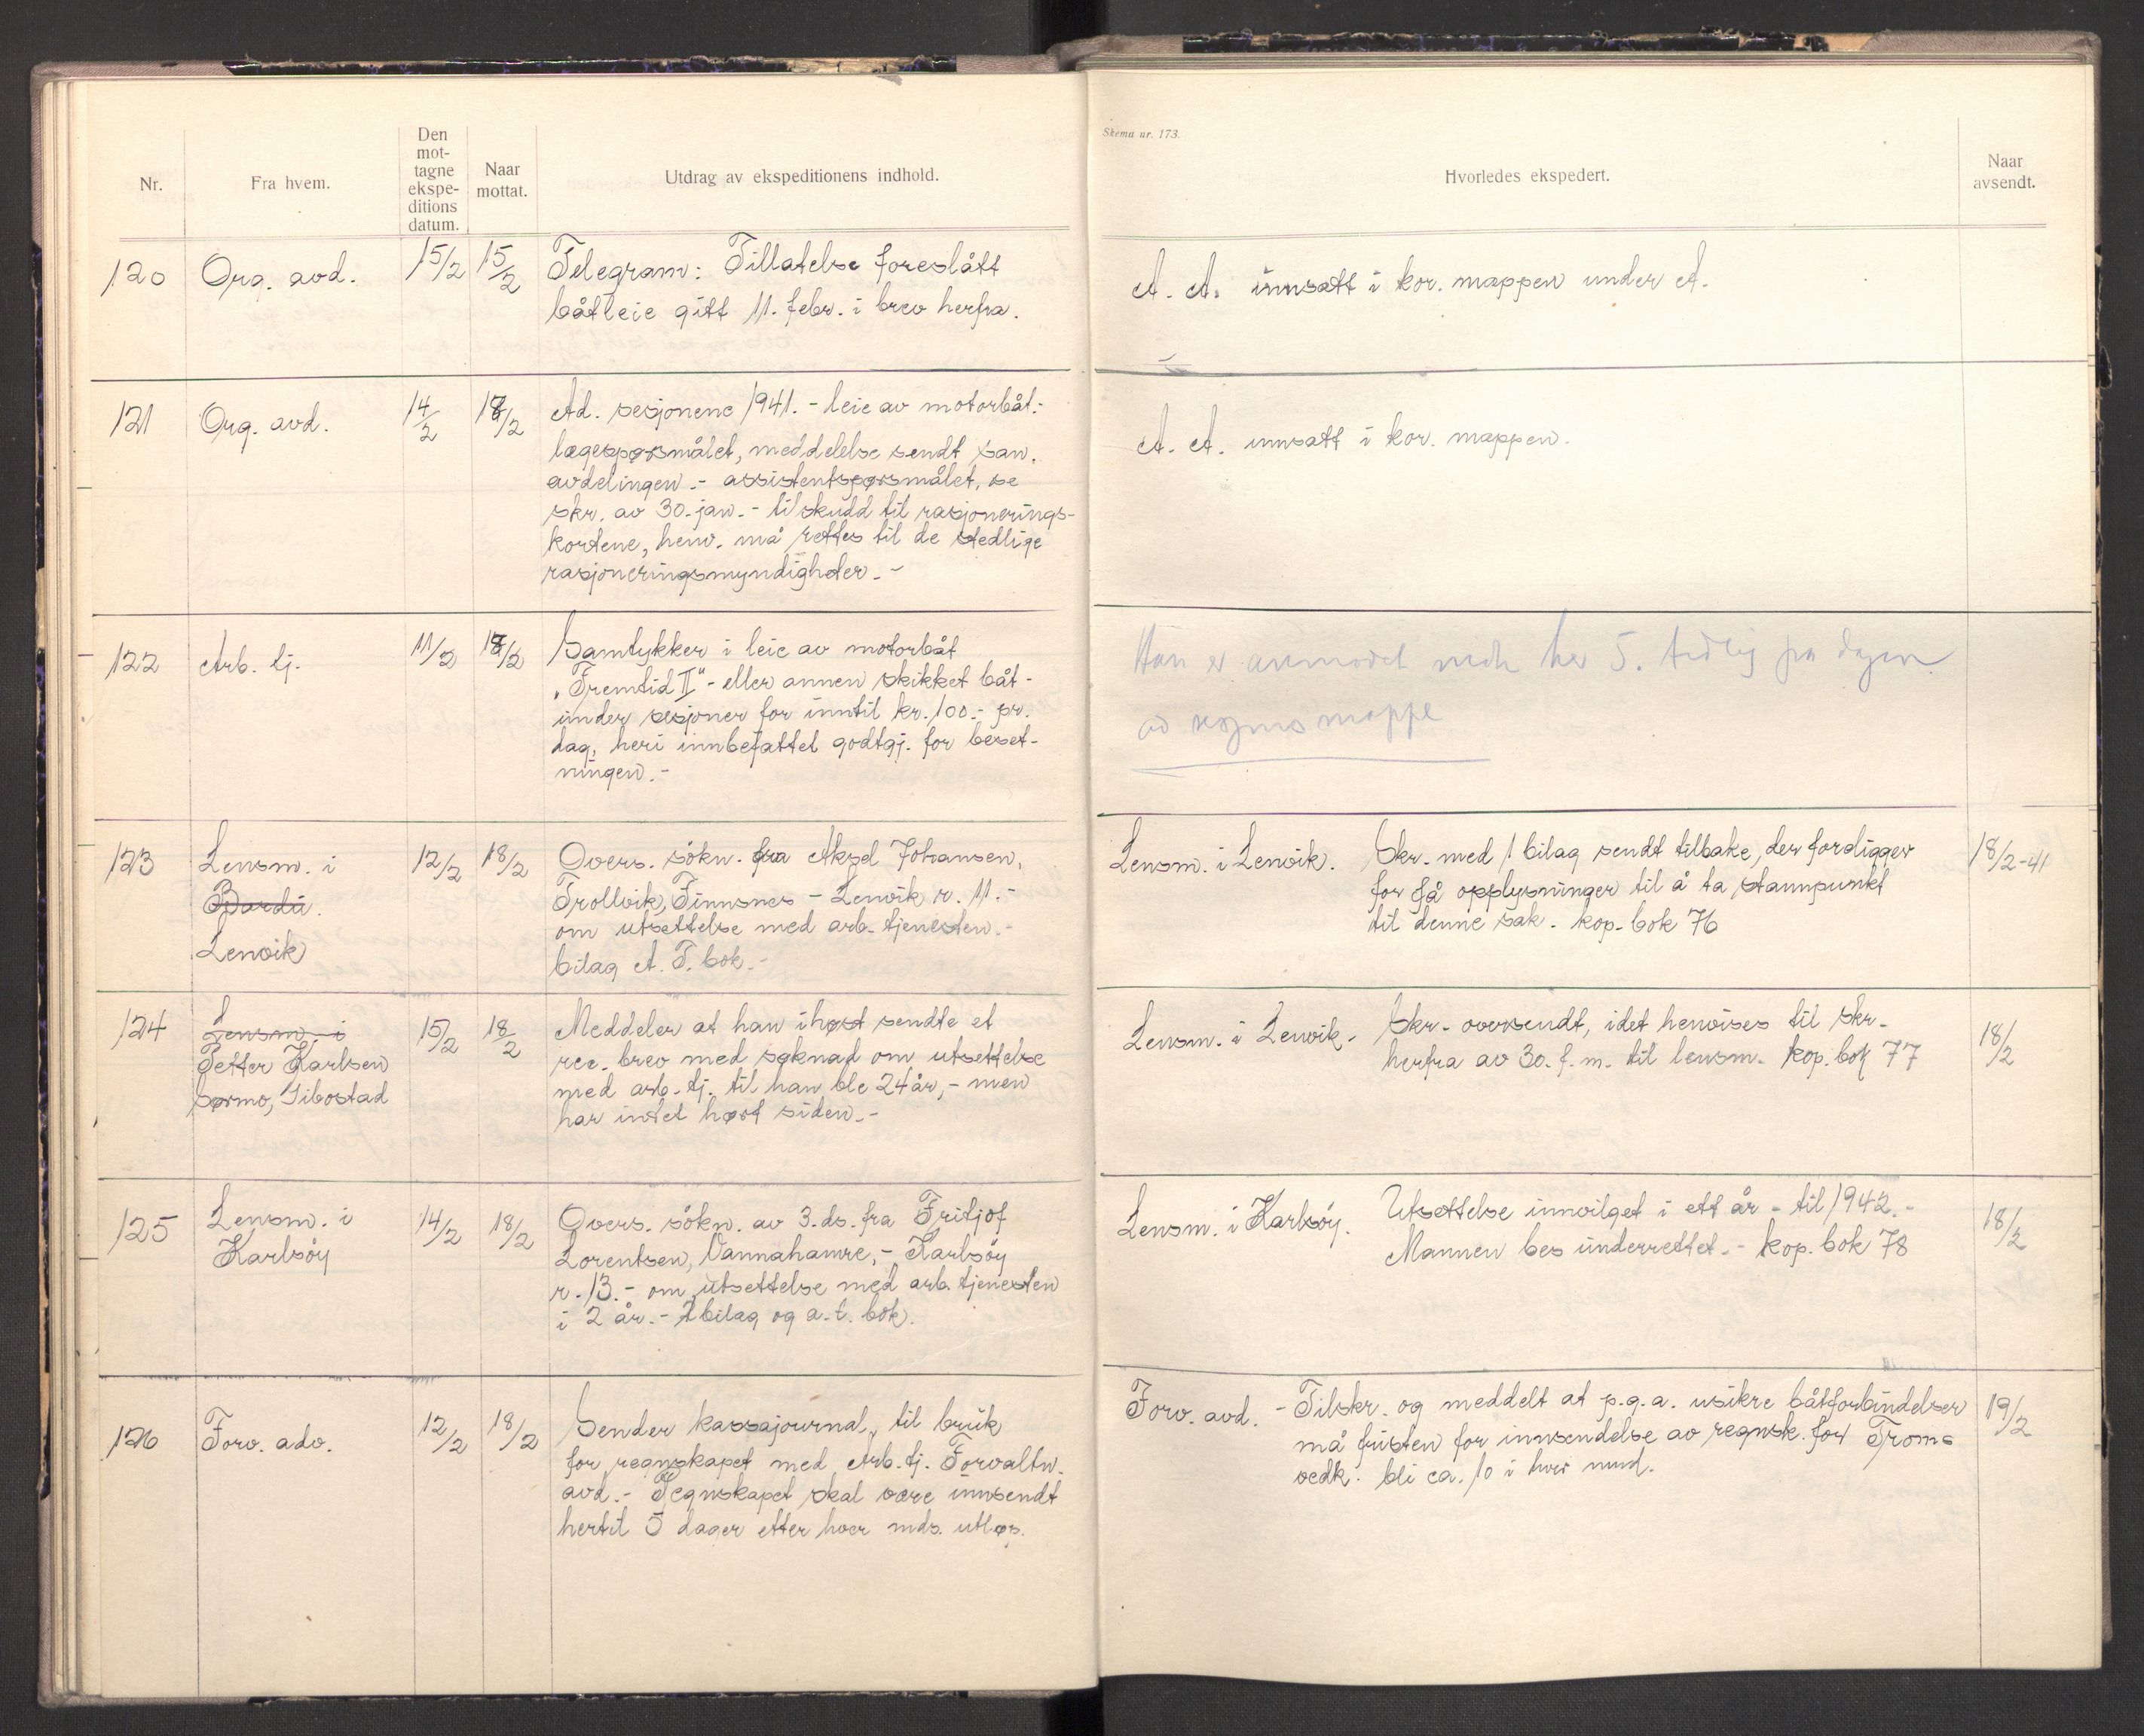 Nr.
Fra hvem.
Den
mot-
tagne
ekspe-
ditions
datum.
Naar
mottat.
Utdrag av ekspeditionens indhold.
120
Org. avd.
15/2
15/2
Telegram: Tillatelse foreslått
båtleie gitt 11. febr. i brev herfra.
121
Org. avd.
14/2
18/2
Ad. sesjonene 1941. - leie av motorbåt.-
lægespørsmålet, meddelelse sendt san.
avdelingen. - assistentspørsmålet, se
skr. av 30. jan. - tilskudd til rasjonerings-
kortene, henv. må rettes til de stedlige
rasjoneringsmyndigheter. -
122
Arb. tj.
11/2
18/2
Samtykker i leie av motorbåt
"Fremtid II" - eller annen skikket båt -
under sesjoner for inntil kr. 100.- pr.
dag, heri innbefattet godtgj. for beset-
ningen. -
123
Lensm. i
Bardu.
Lenvik
12/2
18/2
Overs. søkn. fra Aksel Johansen,
Trollvik, Finnsnes - Lenvik r. 11. -
om utsettelse med arb. tjenesten. -
bilag A. T. bok. -
124
Lensm. i
Petter Karlsen
Sørmo, Gibostad
15/2
18/2
Meddeler at han ihøst sendte et
rec. brev med søknad om utsettelse
med arb. tj. til han ble 24 år, - men
har intet hørt siden. -
125
Lensm. i
Karlsöy
14/2
18/2
Overs. søkn. av 3. ds. fra Fritjof
Lorentsen, Vannahamre, - Karlsöy
r. 13. - om utsettelse med arb. tjenesten
i 2 år. - 2 bilag og a. t. bok.
126
Forv. adv.
12/2
18/2
Sender kassajournal, til bruk
for regnskapet med Arb. tj. Forvaltn.
avd. - Regnskapet skal være innsendt
hertil 5 dager etter hver mds. utløp.
Skema nr. 173.
Hvorledes ekspedert.
Naar
avsendt.
A. A. innsatt i kor. mappen under A.
A. A. innsatt i kor. mappen.
Han er anmodet her 5. tidlig på dagen
mappe
Lensm. i Lenvik. Skr. med 1 bilag sendt tilbake, der foreligger
for få opplysninger til å ta stannpunkt
til denne sak. kop. bok 76
18/2-41
Lensm. i Lenvik. Skr. oversendt, idet henvises til skr.
herfra av 30. f. m. til lensm. kop. bok 77
18/2
Lensm. i Karlsöy. Utsettelse innvilget i ett år - til 1942. -
Mannen bes underrettet. - kop. bok 78
18/2
Forv. avd. - Tilskr. og meddelt at p.g.a. usikre båtforbindelser
må fristen for innsendelse av regnsk. for Troms
vedk. bli ca. 10 i hver mnd.
19/2